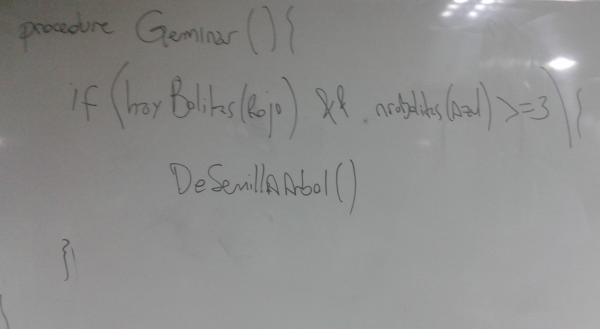 procedure Geminar(){
if (hayBolitas(Rojo) && nroBolitas(Azul) >=3){
DeSemillAAbol()
}
}